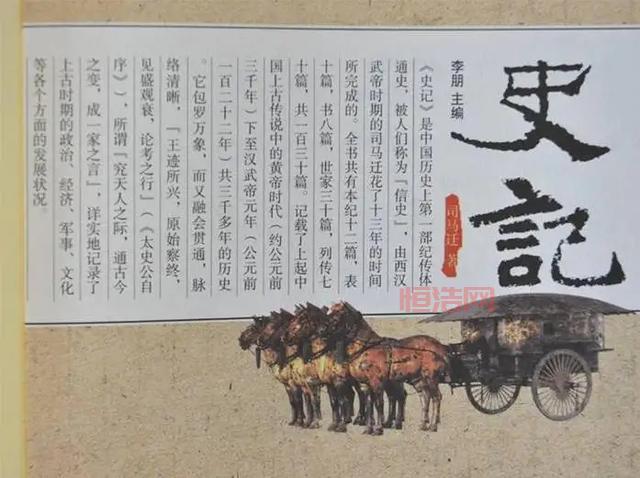 史記
李朋 主编
司马迁 著
《史记》是中国历史上第一部纪传体
通史，被人们称为“信史”，由西汉
武帝时期的司马迁花了十三年的时间
所完成的。全书共有本纪十二篇，表
十篇，书八篇，世家三十篇，列传七
十篇，共一百三十篇。记载了上起中
国上古传说中的黄帝时代（约公元前
三千年）下至汉武帝元年（公元前
一百二十二年）共三千多年的历史
。它包罗万象，而又融会贯通，脉
络清晰，“王迹所兴，原始察终，
见盛观衰，论考之行”（《太史公自
序》），所谓“究天人之际，通古今
之变，成一家之言”，详实地记录了
上古时期的政治、经济、军事、文化
等各个方面的发展状况。
恒浩网